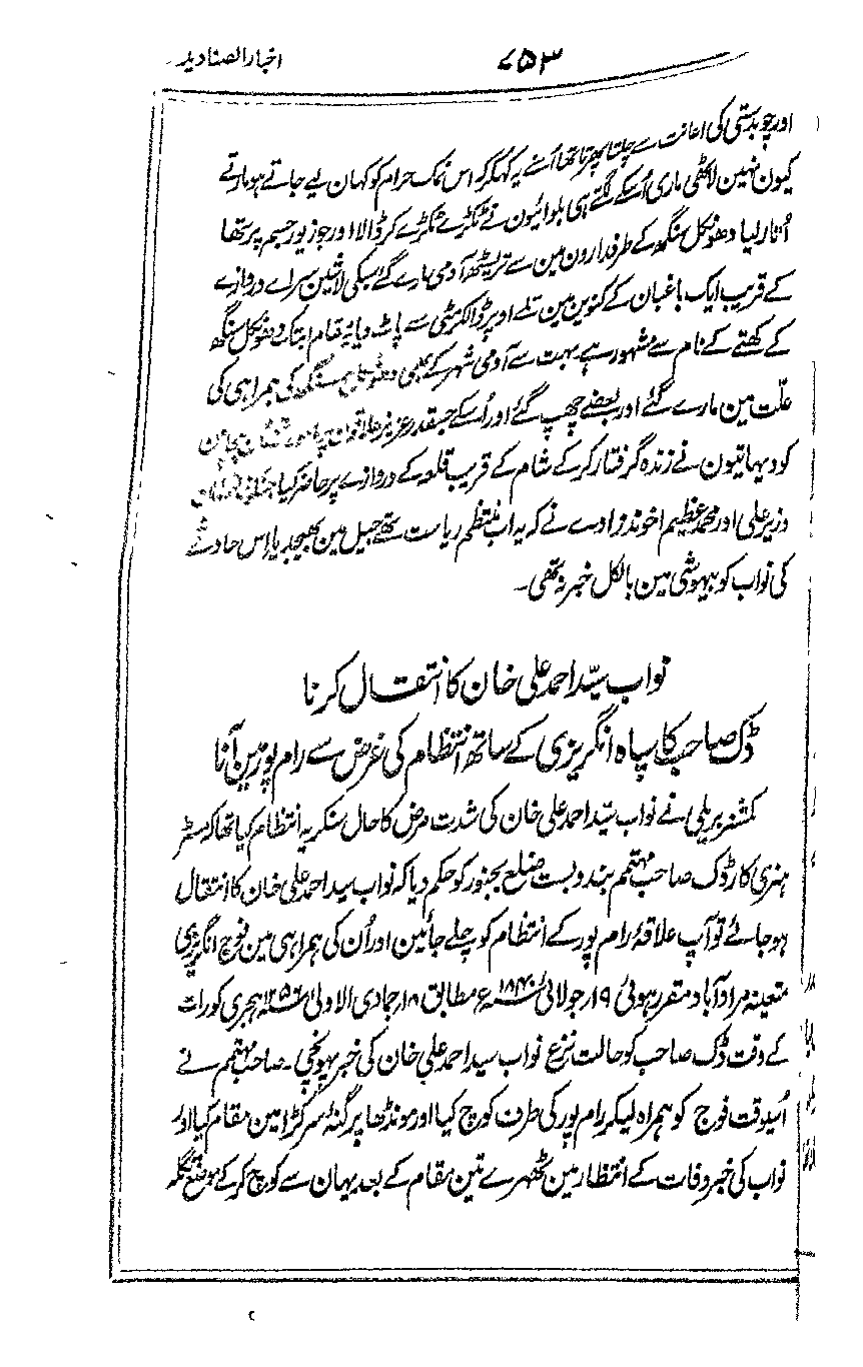 اخبار الصنادید
۷۵۳
اور چوبدستی کی اعانت سے چلتا پھرتا تھا اُسنے یہ کہکر کہ اس نمک حرام کو کہان لیے جاتے ہو مارتے
کیون نہین لاٹھی ماری اُسکے لگتے ہی بلوائیون نے ٹکڑے ٹکڑے کر ڈالا اور جو زیور جسم پر تھا
اُتار لیا دھونکل سنگھ کے طرفدارون مین سے تریسٹھ آدمی مارے گئے سبکی لاشین سراے دروازے
کے قریب ایک باغبان کے کنوین مین تلے اوپر ڈالکر مٹی سے پاٹ دیا یہ مقام ابتک دھونکل سنگھ
کے کھتے کے نام سے مشہور ہے بہت سے آدمی شہر کے بھی دھونکل سنگھ کی ہمراہی کی
علّت مین مارے گئے اور بعضے چھپ گئے اور اُسکے جسقدر عزیز علاقون پر
کو دیہاتیون نے زندہ گرفتار کر کے شام کے قریب قلعہ کے دروازے پر حاضر کیا
وزیر علی اور محمد عظیم اخوندزادے نے کہ یہ اب منتظم ریاست تھے جیل مین بھیجدیا اس حادثے
کی نواب کو بیہوشی مین بالکل خبر نہ تھی۔
نواب سیّد احمد علی خان کا انتقال کرنا
ڈک صاحب کا سپاہ انگریزی کے ساتھ انتظام کی غرض سے رام پور مین آنا
کمشنر بریلی نے نواب سیّد احمد علی خان کی شدت مرض کا حال سنکر یہ انتظام کیا تھا کہ مسٹر
ہنری کارڈک صاحب مہتمم بندوبست ضلع بجنور کو حکم دیا کہ نواب سید احمد علی خان کا انتقال
ہو جائے تو آپ علاقۂ رام پور کے انتظام کو چلے جائین اور اُن کی ہمراہی مین فوج انگریزی
متعینہ مراد آباد مقرر ہوئی ۱۹ر جولائی ۱۸۴۰ء مطابق ۱۸ر جمادی الاولیٰ ۱۲۵۶ہجری کو رات
کے وقت ڈک صاحب کو حالت نزع نواب سید احمد علی خان کی خبر پہونچی۔ صاحب مہتمم نے
اُسیوقت فوج کو ہمراہ لیکر رام پور کی طرف کوچ کیا اور مونڈھا پرگنہ سرکڑا مین مقام کیا اور
نواب کی خبر وفات کے انتظار مین ٹھہرے تین مقام کے بعد یہان سے کوچ کر کے موضع